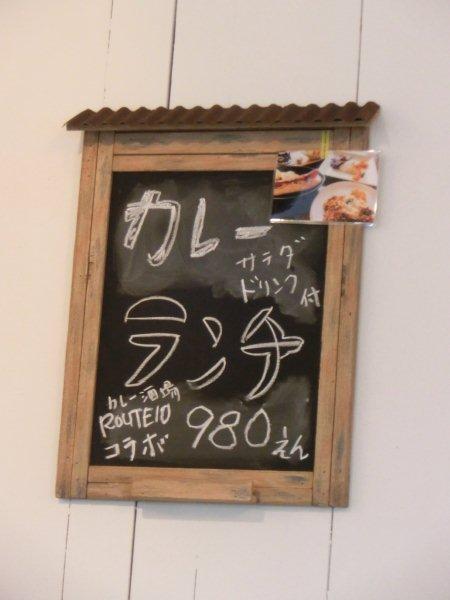 カレー
サラダ
ドリンク付
ランチ
カレー酒場
ROUTE10
コラボ
980えん